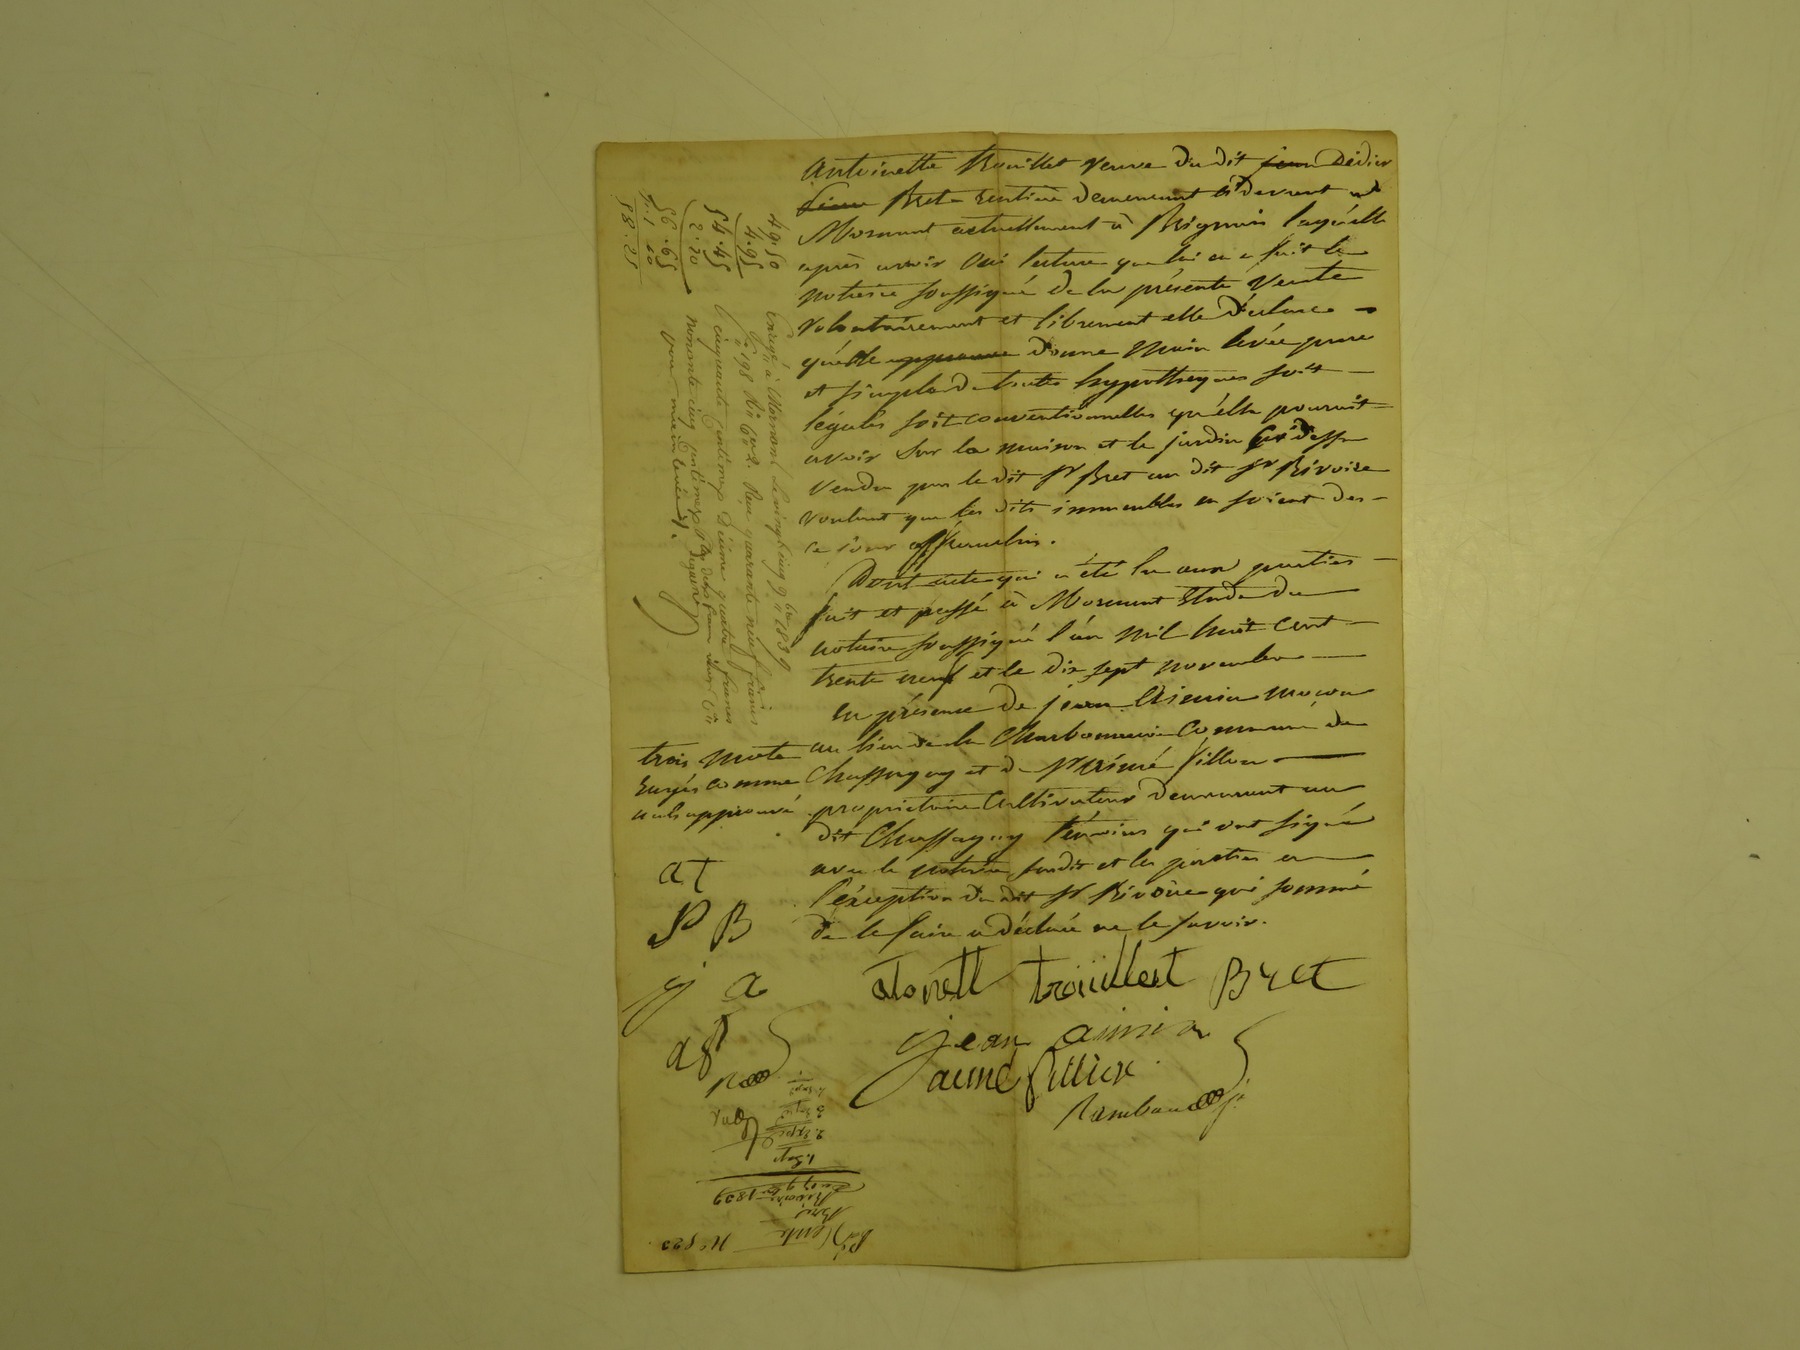 Antoinette Trouillet veuve du dit jean Didier
jean Bret rentière demeurant ci devant a
Mornant actuellement à Brignais laquelle
après avoir oui lecture que lui en a fait le
notaire soussigné de la présente vente
volontairement et librement elle déclare
qu'elle approuve donne main levée pure
et simple de toutes hypotheques soit
légales soit conventionnelles qu'elle pourrait
avoir sur la maison et le jardin ci dessus
vendu par le dit Sr Bret au dit Sr Rivoire
voulant que les dits immeubles en soient des
ce jour affranchis.
Dont acte qui a été lu aux parties
fait et passé à Mornant Etude du
notaire soussigné l'an mil huit cent
trente neuf et le dix sept novembre
En présence de jean Aimain maçon
au lieu de la Charbonnière Commune de
Chassagny et de Sr Aimé fillon
propriétaire Cultivateur demeurant au
dit Chassagny témoins qui ont signé
avec le notaire susdit et les parties a
l'exception du dit Sr Rivoire qui sommé
de le faire a déclaré ne le savoir.
trois mots
rayés comme
nuls approuvé
at
P B
j a
af
atoinett trouillest Bret
jean aimian
aimé fillion
Rambaud
49.50
4.95
54.45
2.20
56.65
1.60
58.25
Enregé à Mornant le vingt cinq 9bre 1839
fo 198 Ro Ces 2. Reçu quarante neuf francs
cinquante centimes Dixième quatre francs
nonante cinq centimes
Vente
Bret
Rivoire
17 9bre 1839
1. Exp
2. Expé
No 523